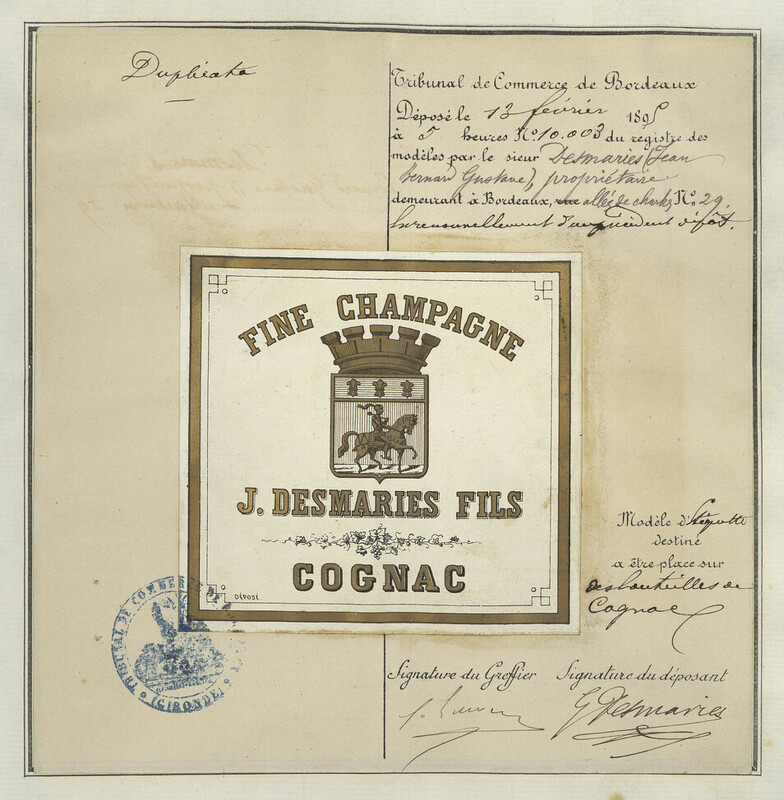 Duplicata
Tribunal de Commerce de Bordeaux
Déposé le 13 février 1895
à 5 heures No. 10.003 du registre des
modèles par le sieur Desmaries (Jean
Bernard Gustave), propriétaire
demeurant à Bordeaux, rue allées de No. 29.
renouvellement d'un précédent dépôt.
FINE CHAMPAGNE
J. DESMARIES FILS
COGNAC
DÉPOSÉ
Modèle d'étiquette
destiné
a être place sur
des bouteilles de
Cognac
TRIBUNAL DE COMMERCE DE
(GIRONDE)
Signature du Greffier Signature du déposant
G Desmaries